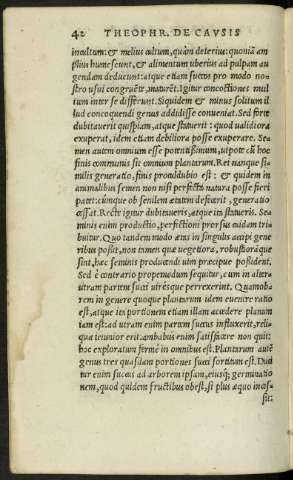 42 THEOPHR. DE CAVSIS
incultum: & melius cultum, quàm deterius: quoniã am
plius humescunt, & alimentum uberius ad pulpam au
gendam deducunt: atque etiam succos pro modo no⸗
stro usui congruẽtr, maturẽt. Igitur concoctiones mul
tum inter se differunt. Siquidem & minus solitum il
lud concoquendi genus addidisse conueniat. Sed forte
dubitauerit quispiam, atque statuerit: quod ualidiora
exuperat, idem etiam debiliora posse exuperare. Se⸗
men autem omnium esse potentissimum, utpote cũ hoc
finis communis sit omnium plantarum. Rei nanque si⸗
milis generatio, finis proculdubio est: & quidem in
animalibus semen non nisi perfecta natura posse fieri
patet: cùmque ob senilem ætatem defecerit, generatio
cessat. Recte igitur dubitaueris, atque ita statueris. Se⸗
minis enim productio, perfectioni prorsus eidam tri
buitur. Quo tandem modo ætas in singulis accipi gene
ribus possit, non tamen quæ uegetiora, robustioraque
sint, hæc seminis producendi uim præcipue possident.
Sed è contrario propemodum sequitur, cum in altera
utram partem succi uirésque perrexerint. Quamob⸗
rem in genere quoque plantarum idem euenire ratio
est, atque ita portionem etiam illam accedere planum
iam est: ad utram enim partem succus influxerit, reli⸗
qua tenuior erit: ambabus enim satisfacere non quit:
hoc exploratum fermè in omnibus est. Plantarum autẽ
genus tres quasdam portiones succi sortitum est. Didu
tur enim succus ad arborem ipsam, eiusq́; germinatio
nem, quod quidem fructibus obest, si plus æquo inces⸗
sit: